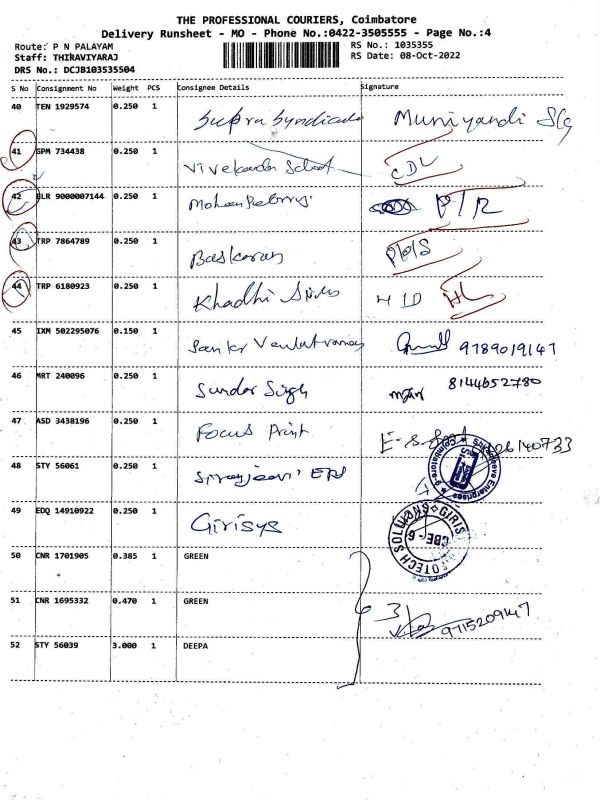 THE PROFESSIONAL COURIERS, Coimbatore
Delivery Runsheet - MO - Phone No.:0422-3505555 - Page No.:4
Route: P N PALAYAM RS No.: 1035355
Staff: THIRAVIYARAJ RS Date: 08-Oct-2022
DRS No.: DCJB103535504
S No Consignment No Weight PCS Consignee Details Signature
40 TEN 1929574 0.250 1 Supra Syndicate Muniyandi
41 GPM 734438 0.250 1 CDL
42 BLR 9000007144 0.250 1
43 TRP 7864789 0.250 1 Baskaran
44 TRP 6180923 0.250 1 Khadhi
45 IXM 502295076 0.150 1 9789019147
46 MRT 240096 0.250 1 Sundar Singh 8144652780
47 ASD 3438196 0.250 1 Focus Print
48 STY 56061 0.250 1 Enterprises Coimbatore
49 EDQ 14910922 0.250 1 Girisys
50 CNR 1701905 0.385 1 GREEN
51 CNR 1695332 0.470 1 GREEN 3 9715209147
52 STY 56039 3.000 1 DEEPA